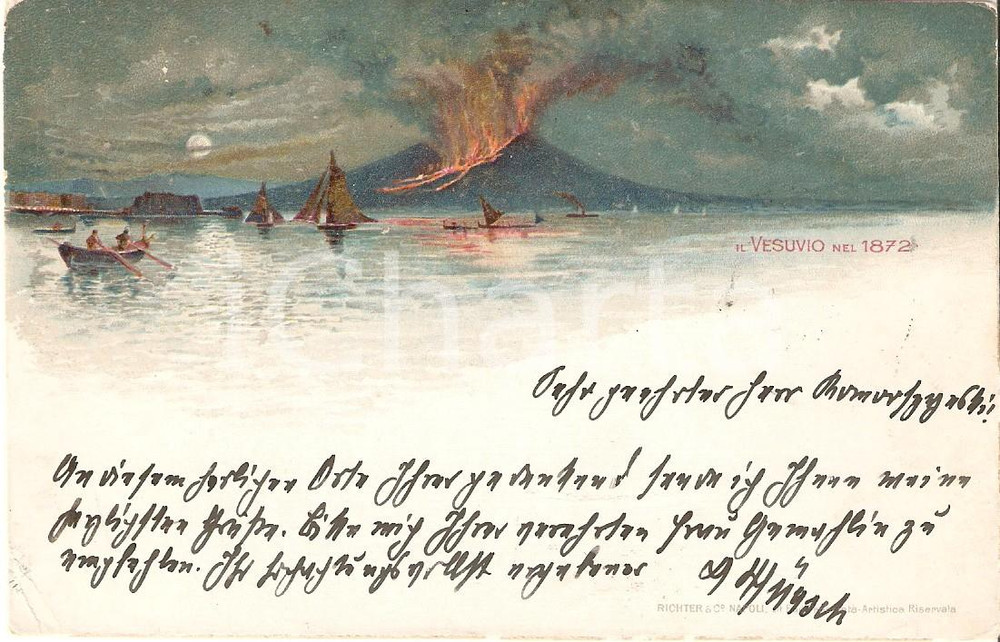 IL VESUVIO NEL 1872
Sehr geehrter Herr
An diesem herlichen Orte Ihrer gedenkend sende ich Ihnen meine
herzlichsten Grüße. Bitte mich Ihrer verehrten Frau Gemahlin zu
empfehlen. Ihr hochachtungsvollst ergebener
RICHTER & Co NAPOLI, -Artistica Riservata
iCharta